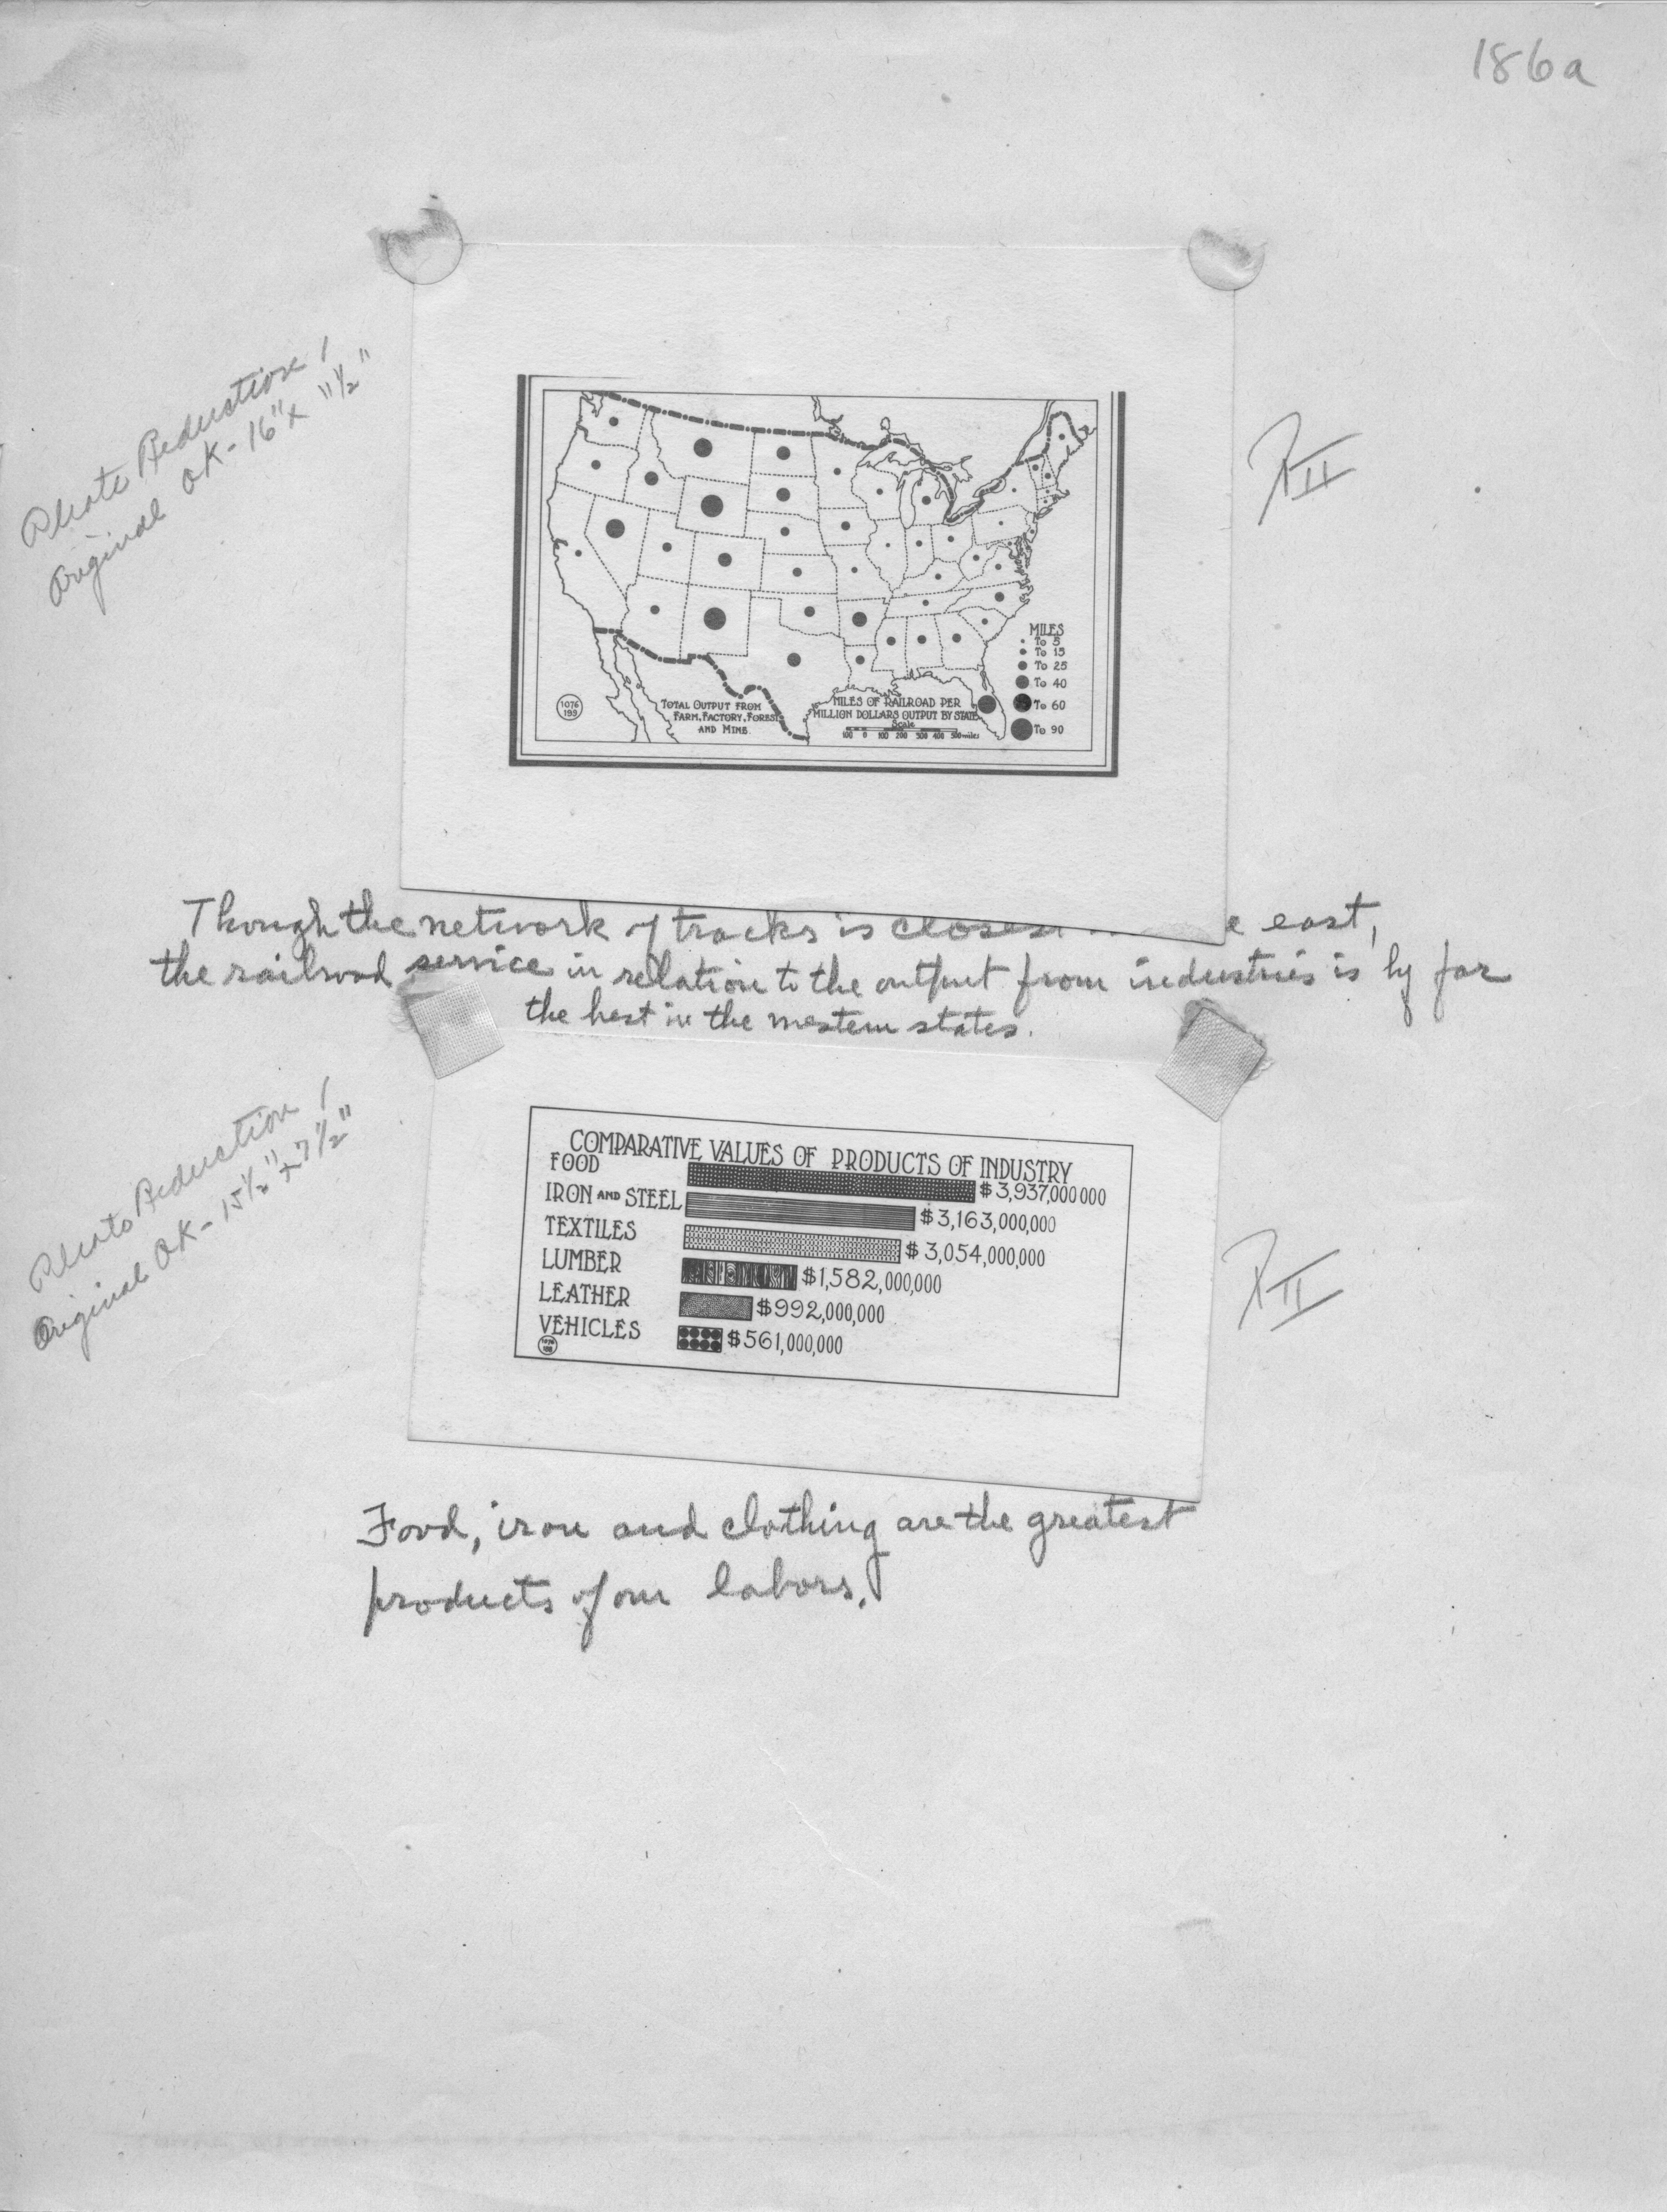 186a
Photo Reduction!
Original OK - 16" x 11½"
P II
1076
193
TOTAL OUTPUT FROM
FARM, FACTORY, FOREST
AND MINE
MILES OF RAILROAD PER
MILLION DOLLARS OUTPUT BY STATE
Scale
100 0 100 200 300 400 500 miles
MILES
To 5
To 15
To 25
To 40
To 60
To 90
Though the network of tracks is closest e east,
the railroad service in relation to the output from industries is by far
the best in the western states.
Photo Reduction!
Original OK - 15½" x 7½"
P II
COMPARATIVE VALUES OF PRODUCTS OF INDUSTRY
FOOD $3,937,000000
IRON AND STEEL $3,163,000,000
TEXTILES $3,054,000,000
LUMBER $1,582,000,000
LEATHER $992,000,000
VEHICLES $561,000,000
1076
Food, iron and clothing are the greatest
products of our labors.